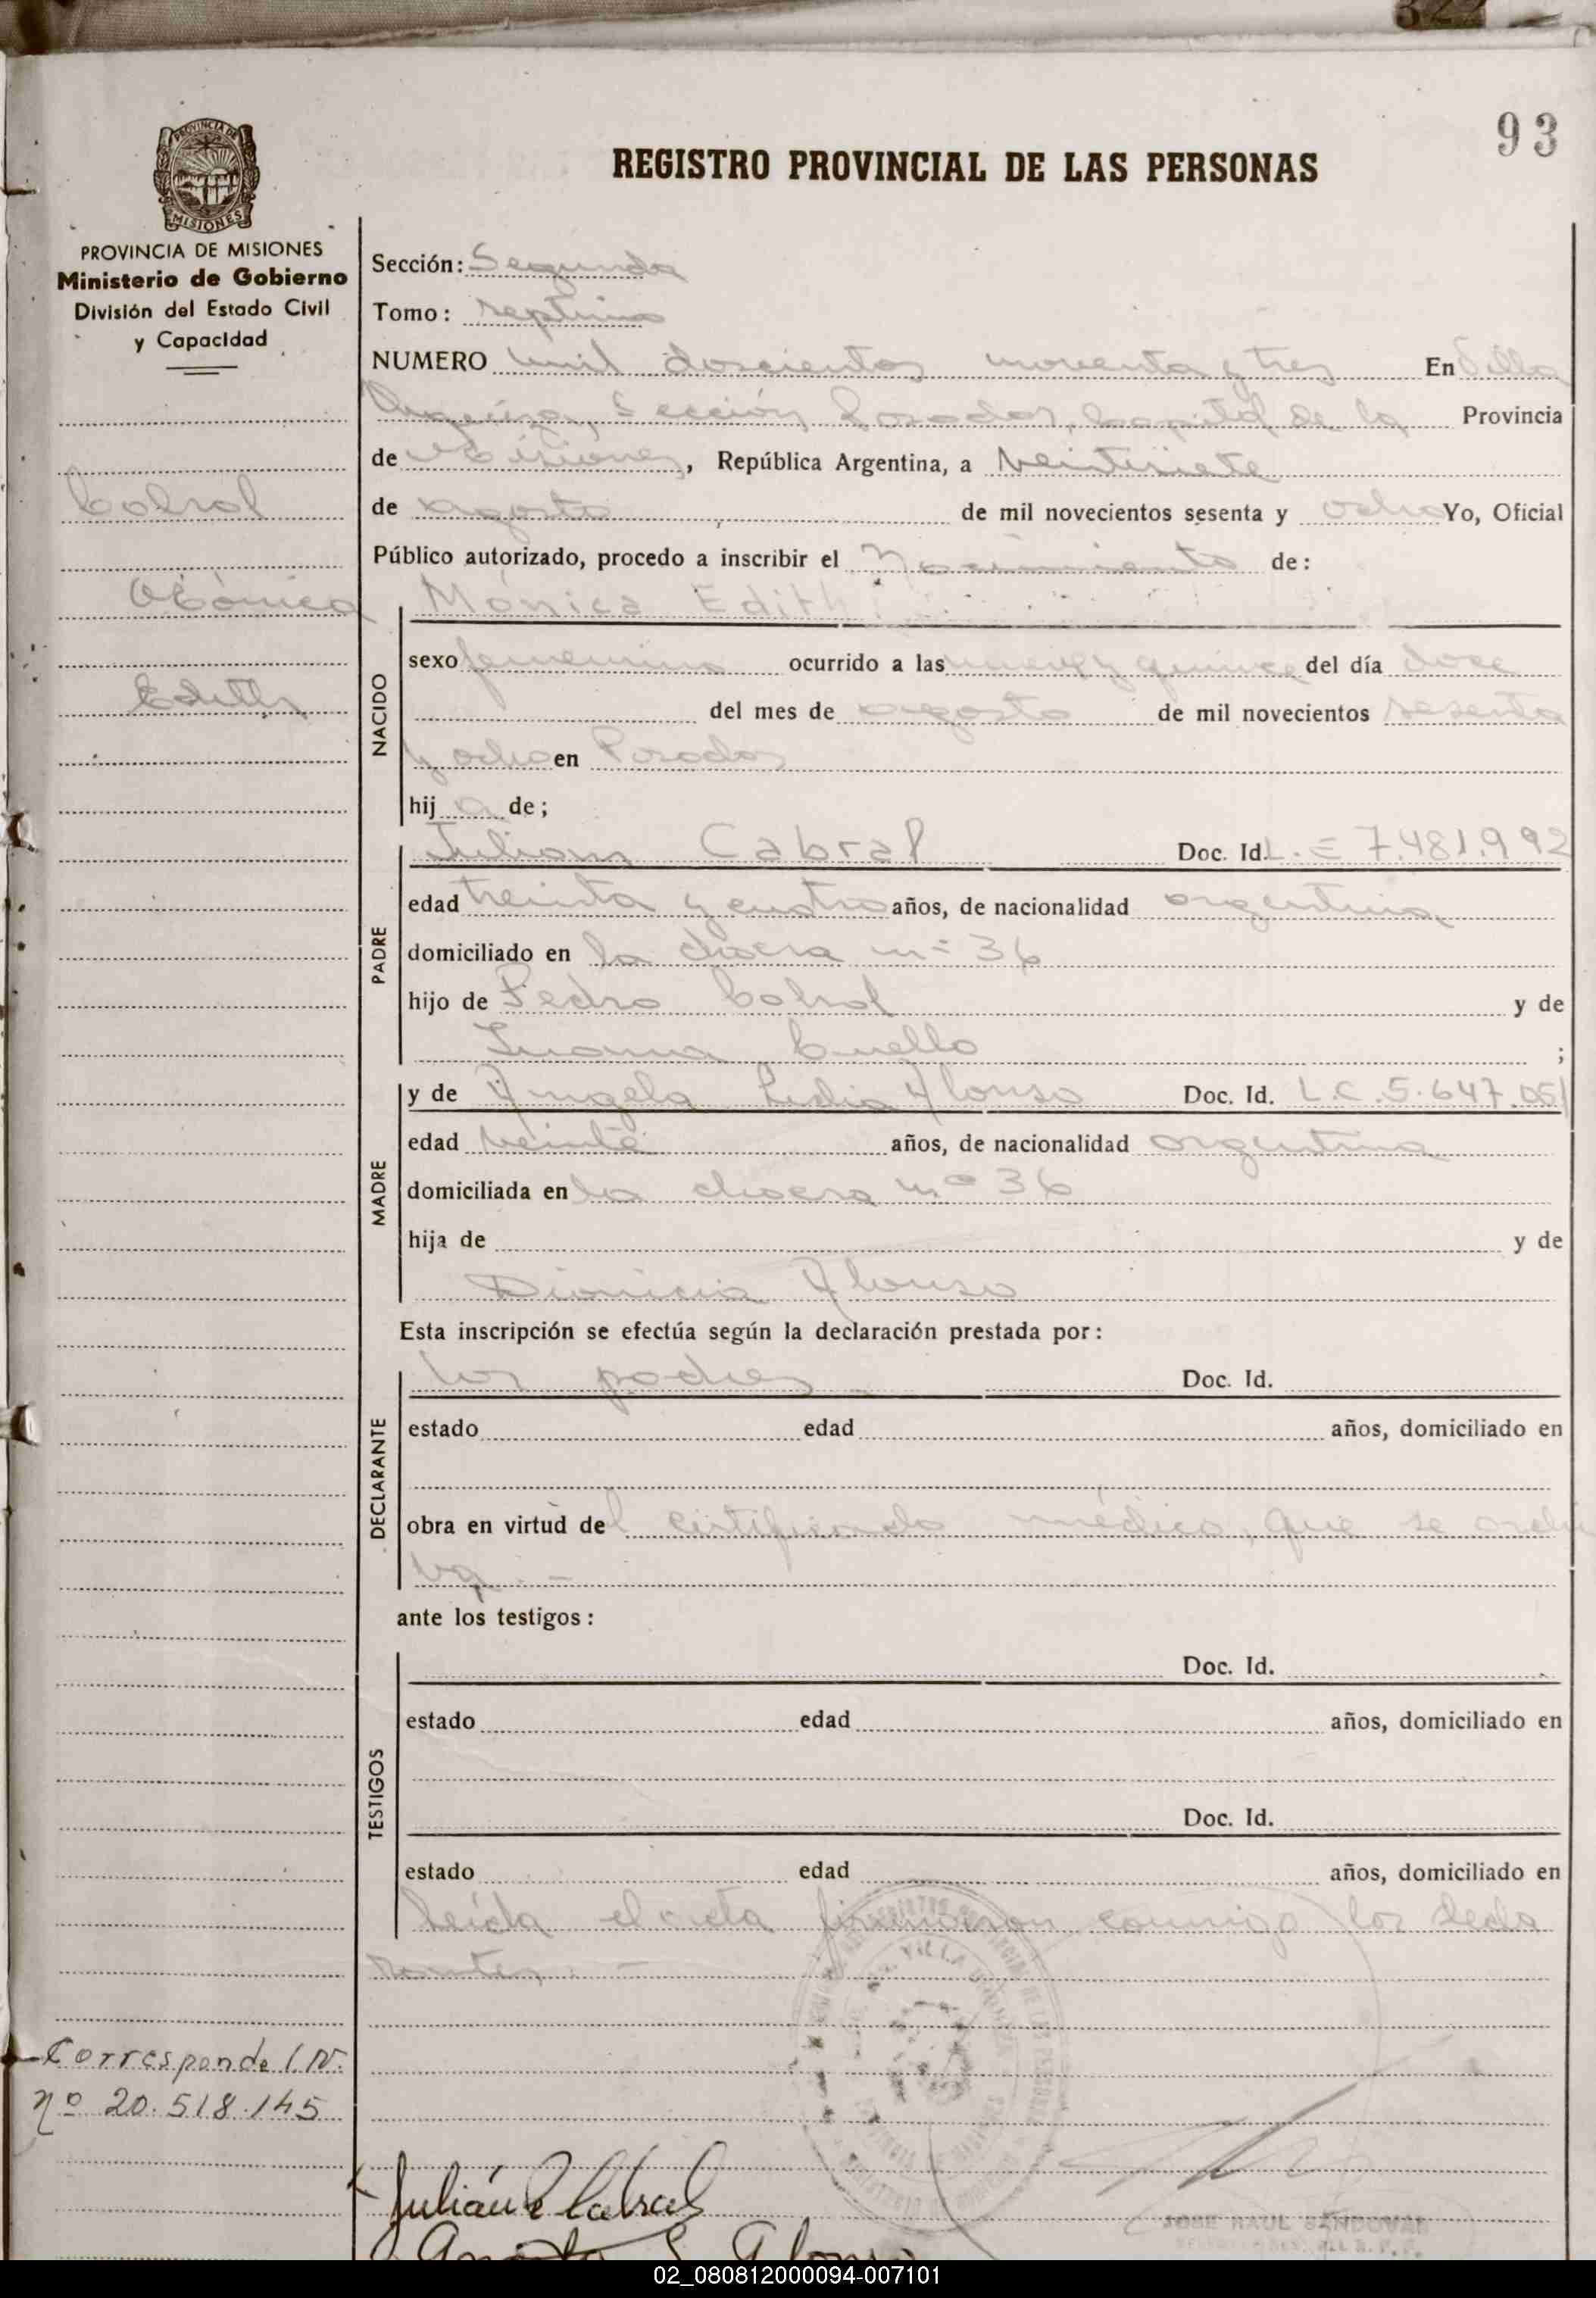 93
REGISTRO PROVINCIAL DE LAS PERSONAS
PROVINCIA DE MISIONES
PROVINCIA DE MISIONES
Ministerio de Gobierno
División del Estado Civil
y Capacidad
Cabral
Mónica
Edith
Corresponde I.N.
nº 20.518.145
Sección: Segunda
Tomo: septimo
NUMERO mil doscientos noventa y tres En Villa
Urquiza, Sección Posadas, Capital de la Provincia
de Misiones, República Argentina, a veintisiete
de agosto de mil novecientos sesenta y ocho Yo, Oficial
Público autorizado, procedo a inscribir el Nacimiento de:
NACIDO
Mónica Edith
sexo femenino ocurrido a las nueve y quince del día doce
del mes de agosto de mil novecientos sesenta
y ocho en Posadas
hij a de;
PADRE
Julian Cabral Doc. Id. L.E 7.481.992
edad treinta y cuatro años, de nacionalidad argentina
domiciliado en la chacra nº 36
hijo de Pedro Cabral y de
Juana Cuello ;
MADRE
y de Angela Lidia Alonso Doc. Id. L.C.5.647.051
edad veinte años, de nacionalidad argentina
domiciliada en la chacra nº 36
hija de y de
Dionicia Alonso
Esta inscripción se efectúa según la declaración prestada por:
DECLARANTE
los padres Doc. Id.
estado edad años, domiciliado en
obra en virtud del certificado médico, que se archi
va.-
ante los testigos:
TESTIGOS
Doc. Id.
estado edad años, domiciliado en
Doc. Id.
estado edad años, domiciliado en
Leída el acta firmaron conmigo los decla
rantes.-
VILLA
Julián Cabral
Alonso
JOSE RAUL SANDOVAL
02_080812000094-007101